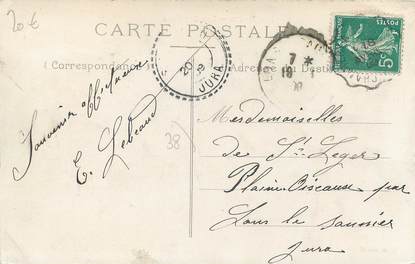 20 €
CARTE POSTALE
(Correspondance)
Adresse du Destinataire
20
JURA
7
POSTES
5c
38
Souvenir affectueux
E. Lebeaud
Mesdemoiselles
de St Leger
Plainoiseau par
Lons le saunier
Jura